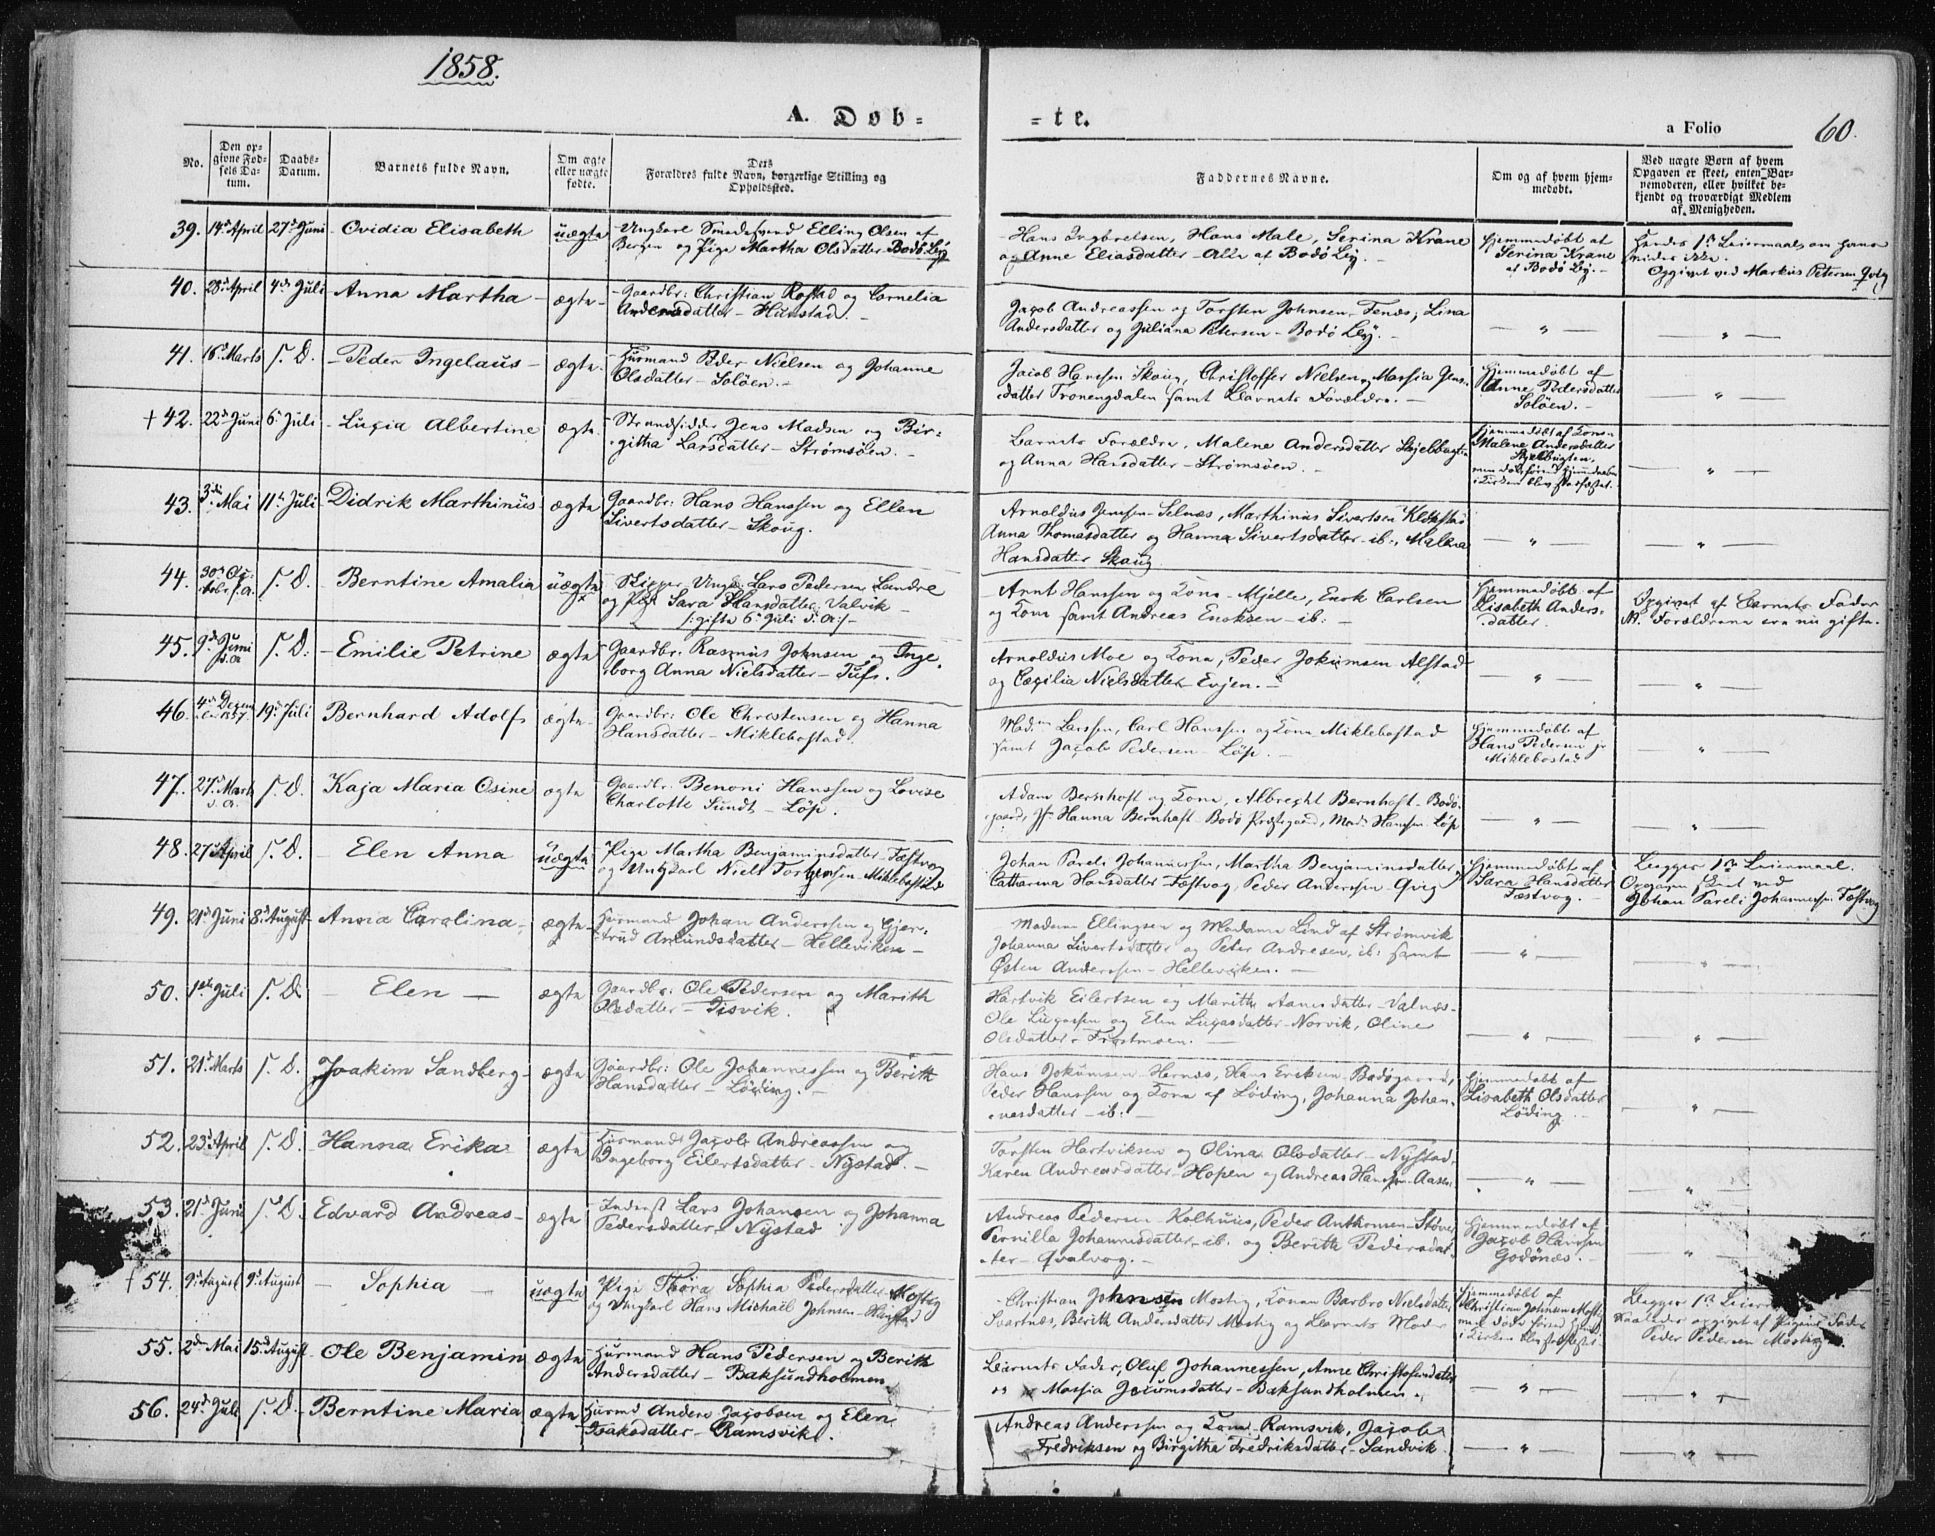 1858.
A. Døb-
-te.
a Folio
60.
No.
Den op-
givne Fød-
sels Da-
tum.
Daabs-
Datum.
Barnets fulde Navn.
Om ægte
eller uægte
fødte.
Dets
Forældres fulde Navn, borgerlige Stilling og
Opholdssted.
Faddernes Navne.
Om og af hvem hjem-
medøbt.
Ved uægte Børn af hvem
Opgaven er skeet, enten Bar-
nemoderen, eller hvilket be-
kjendt og troværdigt Medlem
af Menigheden.
39. 14d April 27d Juni - Ovidia Elisabeth uægte
Ungkarl Smedesvend Elling Olsen af
Bergen og Pige Martha Olsdatter Bodø By
Hans Ingbretsen, Hans Male, Serina Krane
og Anne Eliasdatter - Alle af Bodø By. -
Hjemmedøbt af
Serina Krane
af Bodø By. -
Hendes 1ste Leiermaal, om hans
vides ikke.
Opgivet ved Markus Petersen
40. 28d April 4de Juli - Anna Martha - ægte -
Gaardbr: Christian Rostad og Cornelia
Andersdatter - Hunstad. -
Jacob Andreassen og Torsten Johnsen - Fenæs; Lina
Andersdatter og Juliana Petersen - Bodø By. -
— " —
— " —
41. 16d Marts s. D. - Peder Ingelaus - ægte -
Huusmand Peder Nielsen og Johanne
Olsdatter - Soløen. -
Jacob Hansen Skoug, Christoffer Nielsen og Massia Jens-
datter Tronengdalen samt Barnets Forældre. -
Hjemmedøbt af
Anne Pedersdatter
Soløen. -
— " —
+ 42. 22d Juni 6 Juli - Lucia Albertine ægte
Strandsidder Jens Madsen og Bir-
githa Larsdatter - Strømsøen. -
Barnets Forældre, Malene Andersdatter Skjelbugten
og Anna Hansdatter - Strømsøen. -
Hjemmedøbt af Konen
Malene Andersdatter
Skjelbugten,
— " —
43. 3die Mai 11te Juli Didrik Marthinus ægte
Gaardbr: Hans Hanssen og Ellen
Sivertsdatter - Skoug.
Arnoldus Jensen - Selnæs, Marthinus Sivertsen Klokstad
Anna Thomasdatter og Hanna Sivertsdatter - ib., Malena
Hansdatter Skoug
— " —
— " —
44. 30te Oc-
tobr f. A. s. D. Berntine Amalia uægte
Skipper Ungk. Lars Pedersen Landre
og Pige Sara Hansdatter Valvik -
/: gifte 6 Juli d. A :/ -
Arnt Hanssen og Kona - Mjelle, Enok Carlsen
og Kona samt Andreas Enoksen - ib: -
Hjemmedøbt af
Lisabeth Anders-
datter.
Opgivet af Barnets Fader
N. Forældrene ere nu gifte.
45. 9de Juni
d. A s. D. - Emilie Petrine ægte
Gaardbr: Rasmus Johnsen og Inge-
borg Anna Nielsdatter - Tufs.
Arnoldus Moe og Kona, Peder Jokumsen Alstad
og Cæcilia Nielsdatter - Evjen. -
— " —
— " —
46. 4de Decem-
ber 1857. 19de Juli Bernhard Adolf ægte -
Gaardbr: Ole Christensen og Hanna
Hansdatter - Miklebostad.
Madm Larssen, Carl Hanssen og Kona Miklebostad
samt Jacob Pedersen - Løp. -
Hjemmedøbt af
Hans Pedersen
Miklebostad
— " —
47. 27d Marts
d. A. s. D. - Kaja Maria Osine ægte
Gaardbr: Benoni Hanssen og Lovise
Charlotte Sundt - Løp.
Adam Bernhoft og Kona, Albrecht Bernhoft - Bodø-
gaard, Jfr Hanna Bernhoft - Bodø Præstegaard, Mad: Hansen Løp
— " —
— " —
48. 27d April s. D. - Elen Anna uægte
Pige Martha Benjaminsdatter Fæstvog
og Ungkarl Niels Torgersen - Miklebostad
Johan Pareli Johannessen, Martha Benjaminsdatter,
Catharina Hansdatter Fæstvog, Peder Anderssen - Qvig
Hjemmedøbt af
Sara Hansdatter
Fæstvog. -
Begges 1ste Leiermaal.
Opgaven skeet ved
Johan Pareli Johannessen Fæstvog
49. 21d Juni 8d August - Anna Carolina - ægte -
Huusmand Johan Anderssen og Gjer-
trud Amundsdatter - Helleviken -
Madame Ellingsen og Madame Lind af Strømvik
Johanna Sivertsdatter og Peter Andresen, ib: samt
Østen Anderssen - Helleviken. -
— " —
— " —
50. 1ste Juli s. D. - Elen — ægte
Gaardbr: Ole Pedersen og Marith
Olsdatter - Tisvik.
Hartvik Eilertsen og Marith Aamodatter - Valnæs -
Ole Lucassen og Elen Lucasdatter - Norvik, Oline
Olsdatter - Frostmoen. -
— " —
— " —
51. 21d Marts s. D. Joakim Sandberg - ægte
Gaardbr: Ole Johannessen og Berith
Hansdatter - Løding. -
Hans Jokumsen - Hernæs, Hans Eriksen - Bodøgaard,
Peder Hanssen og Kona af Løding, Johanna Johan-
nesdatter - ib: -
Hjemmedøbt af
Lisabeth Olsdatter
Løding. -
— " —
52. 23d April s. D. - Hanna Erika ægte
Huusmand Jacob Andreassen og
Ingeborg Eilertsdatter - Nystad. -
Torsten Hartviksen og Olina Olsdatter - Nystad.
Karen Andreasdatter - Hopen og Andreas Hansen - Aasen
— " —
— " —
53. 21d Juni s. D. Edvard Andreas - ægte
Inderst Lars Johansen og Johanna
Pedersdatter - Nystad
Andreas Pedersen - Kolhuus, Peder Anthonsen - Støver
Pernilla Johannisdatter - ib. og Berith Pedersdat-
ter - Qvalvog. -
Hjemmedøbt af
Jacob Hanssen
Godønæs. -
— " —
+ 54. 9d August 9d August - Sophia — uægte
Pige Thora Sophia Pedersdatter Mostig
og Ungkarl Hans Michael Johnsen -
Christian Johnsen Mostig, Konen Barbro Nielsdatter
Svartnæs, Berith Andersdatter Mostig og Barnets Moder
Hjemmedøbt af
Christian Johnsen Mostig
Begges 1ste
opgivet af Pigens Fader
Peder Pedersen Mostig
55. 2den Mai 15d August - Ole Benjamin ægte
Huusmand Hans Pedersen og Berith
Andersdatter - Baksundholmen
Barnets Fader, Oluf Johannessen, Anne Christofersdatter
og Massia Jocumsdatter - Baksundholmen.
— " —
— " —
56. 24d Juli s. D. - Berntine Maria ægte
Huusmd Anders Jacobsen og Elen
Isaksdatter - Ramsvik.
Andreas Anderssen og Kona Ramsvik, Jacob
Fredriksen og Birgitha Fredriksdatter - Sandvik
— " —
— " —